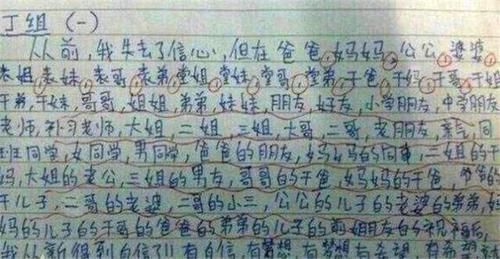 丁组 (一)
从前,我失去了信心,但在爸爸,妈妈,公公,婆婆
表姐,表妹,表哥,表弟,堂姐,堂妹,堂哥,堂弟,干爸,干妈,干哥,干姐
干弟,干妹,哥哥,姐姐,弟弟,妹妹,朋友,好友,小学朋友,中学朋友
老师,补习老师,大姐,二姐,三姐,大哥,二哥,老朋友,同
班同学,女同学,男同学,爸爸的朋友,妈妈的同事,二姐的干
妈,大姐的老公,三姐的男友,哥哥的干爸,妈妈的干爸,爷爷的
干儿子,二哥的老婆,二哥的小三,公公的儿子的老婆的弟弟,
妈的儿子的干哥的爸爸的弟弟的儿子的前姆朋友的祝福后,
我从新得到自信了!!有自信,有梦想,有梦想有希望,有希望